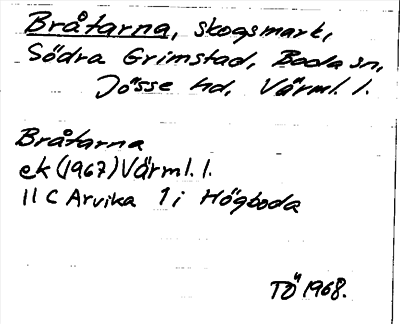 Bråtarna, skogsmark,
Södra Grimstad, Boda sn,
Jösse hd, Värml. l.
Bråtarna
ek (1967) Värml. l.
11 C Arvika 1 i Högboda
TÖ 1968.